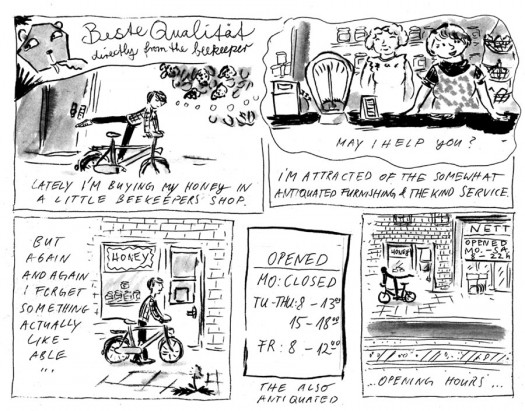 Beste Qualität
directly from the beekeeper
LATELY I'M BUYING MY HONEY IN
A LITTLE BEEKEEPERS SHOP.
MAY I HELP YOU?
I'M ATTRACTED OF THE SOMEWHAT
ANTIQUATED FURNISHING & THE KIND SERVICE.
BUT
AGAIN
AND AGAIN
I FORGET
SOMETHING
ACTUALLY
LIKE-
ABLE
...
HONEY
OPENED
MO: CLOSED
TU-THU: 8 - 13 00
15 - 18 00
FR: 8 - 12 00
THE ALSO
ANTIQUATED
HONEY
NETT
OPENED
MO-SA
8 - 22h
...OPENING HOURS...